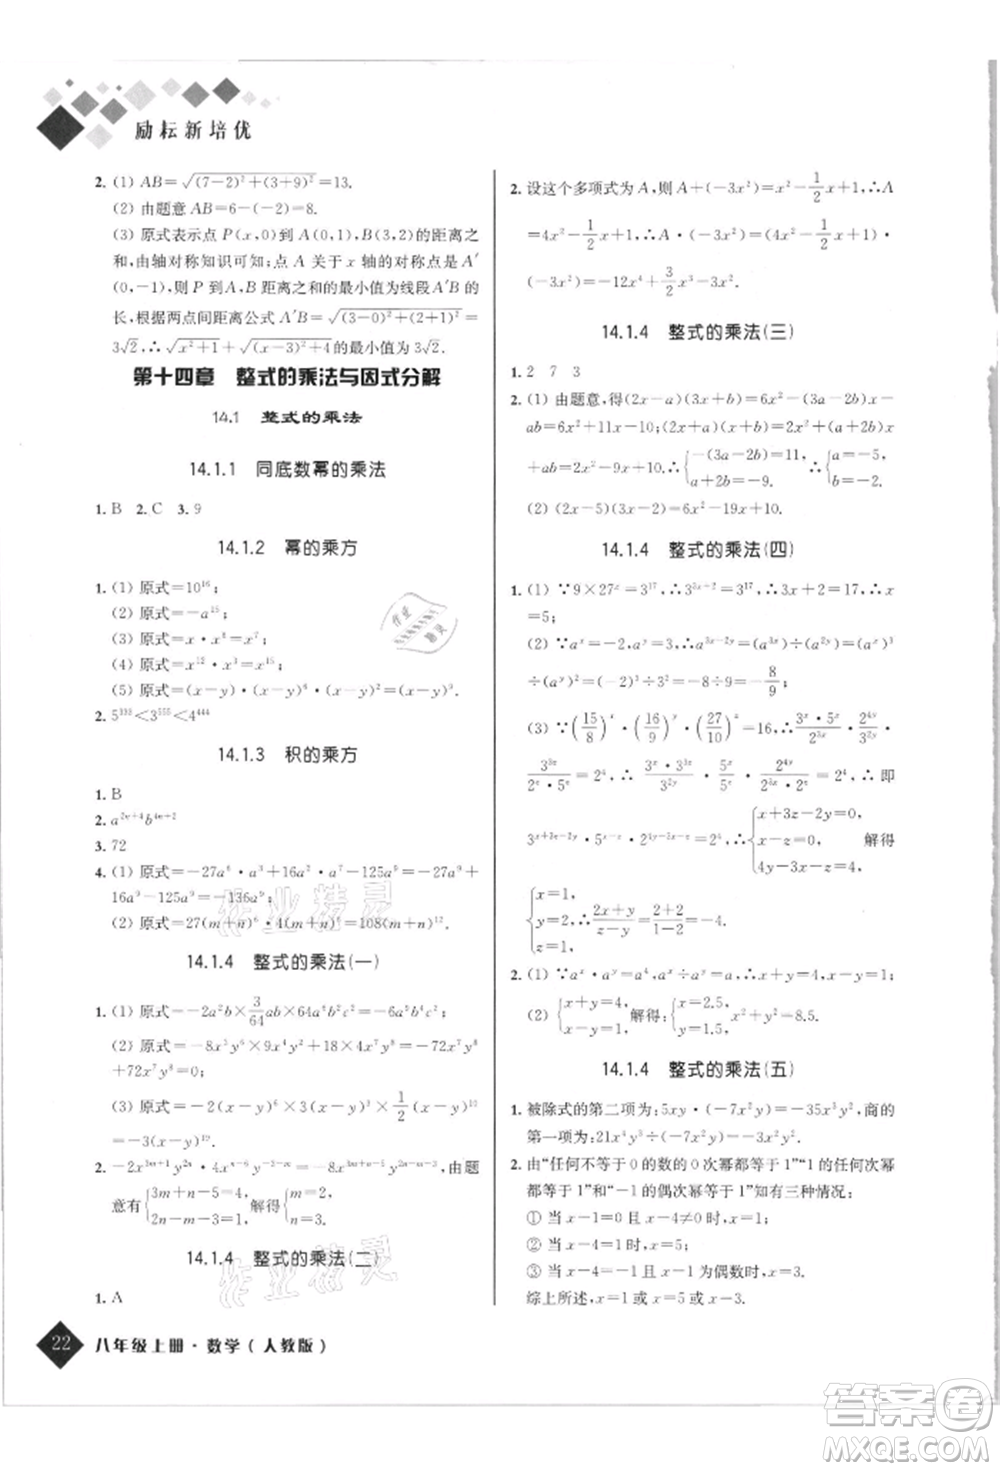 励耘新培优
2. (1) AB=√((7−2)²+(3+9)²)=13.
(2) 由题意AB=6−(−2)=8.
(3) 原式表示点 P(x,0)到 A(0,1),B(3,2)的距离之
和,由轴对称知识可知:点 A 关于 x 轴的对称点是 A′
(0,−1),则 P 到A、B 距离之和的最小值为线段A′B 的
长,根据两点间距离公式A′B=√((3−0)²+(2+1)²)=
3√2,∴√(x²+1)+√((x−3)²+4)的最小值为 3√2.
第十四章 整式的乘法与因式分解
14.1 整式的乘法
14.1.1 同底数幂的乘法
1. B 2. C 3. 9
14.1.2 幂的乘方
1. (1) 原式=10¹⁶;
(2) 原式=−a¹⁵;
(3) 原式=x⁶·x³=x⁹;
(4) 原式=x¹²·x³=x¹⁵;
(5) 原式=(x−y)·(x−y)⁶=(x−y)⁷.
2. 5³³³<3⁵⁵⁵<4⁴⁴⁴
14.1.3 积的乘方
1. B
3. 72
4. (1) 原式=−27a⁶·a³+16a²·a⁷−125a⁹=−27a⁹+
16a⁹−125a⁹=−136a⁹;
(2) 原式=27(m+n)⁶·4(m+n)⁶=108(m+n)¹².
14.1.4 整式的乘法(一)
(3) 原式=−2(x−y)⁶×3(x−y)³×1/2(x−y)¹⁰
=−3(x−y)¹⁹.
意有{3m+n−5=4, 2n−m−9=1. 解得{m=2, n=3.
14.1.4 整式的乘法(二)
1. A
22 八年级上册·数学(人教版)
2. 设这个多项式为 A,则 A+(−3x²)=x²−1/2x+1,∴A
=4x²−1/2x+1,∴A·(−3x²)=(4x²−1/2x+1)·
(−3x²)=−12x⁴+3/2x³−3x².
14.1.4 整式的乘法(三)
1. 2 7 3
2. (1) 由题意,得(2x−a)(3x+b)=6x²−(3a−2b)x−
ab=6x²+11x−10;(2x+a)(x+b)=2x²+(a+2b)x+
ab=2x²−9x+10.∴{−(3a−2b)=11, a+2b=−9. ∴{a=−5, b=−2.
(2) (2x−5)(3x−2)=6x²−19x+10.
14.1.4 整式的乘法(四)
1. (1) ∵9×27ˣ=3¹⁷,∴3³ˣ⁺²=3¹⁷,∴3x+2=17.∴x
=5;
(2) ∵aˣ=−2,aʸ=3,∴a³ˣ⁻²ʸ=(a³ˣ)÷(a²ʸ)=(aˣ)³
÷(aʸ)²=(−2)³÷3²=−8÷9=−8/9;
(3) ∵(15/8)ˣ·(16/9)ʸ·(27/10)ᶻ=16,∴3ˣ·5ˣ/2³ˣ·2⁴ʸ/3²ʸ·
3³ᶻ/(2ᶻ·5ᶻ)=2⁴,∴ 3ˣ·3³ᶻ/3²ʸ·5ˣ/5ᶻ·2⁴ʸ/(2³ˣ·2ᶻ)=2⁴,∴ 即
3ˣ⁺³ᶻ⁻²ʸ·5ˣ⁻ᶻ·2⁴ʸ⁻³ˣ⁻ᶻ=2⁴,∴{x+3z−2y=0, x−z=0, 4y−3x−z=4. 解得
{x=1, y=2, z=1. ∴(2x+y)/(zx−y)=(2+2)/(1−2)=−4.
2. (1) ∵aˣ·aʸ=a⁴,aˣ÷aʸ=a,∴x+y=4,x−y=1;
(2) {x+y=4, x−y=1. 解得:{x=2.5, y=1.5, x²+y²=8.5.
14.1.4 整式的乘法(五)
1. 被除式的第二项为:5xy·(−7x²y)=−35x³y²,商的
第一项为:21x⁴y³÷(−7x²y)=−3x²y².
2. 由“任何不等于 0 的数的 0 次幂都等于 1”“1 的任何次幂
都等于 1”和“−1 的偶次幂等于 1”知有三种情况:
① 当 x−1=0 且 x−4≠0 时,x=1;
② 当 x−4=1 时,x=5;
③ 当 x−4=−1 且 x−1 为偶数时,x=3.
综上所述,x=1 或 x=5 或 x=3.
作业精灵
作业精灵
答案圈
MXQE.COM